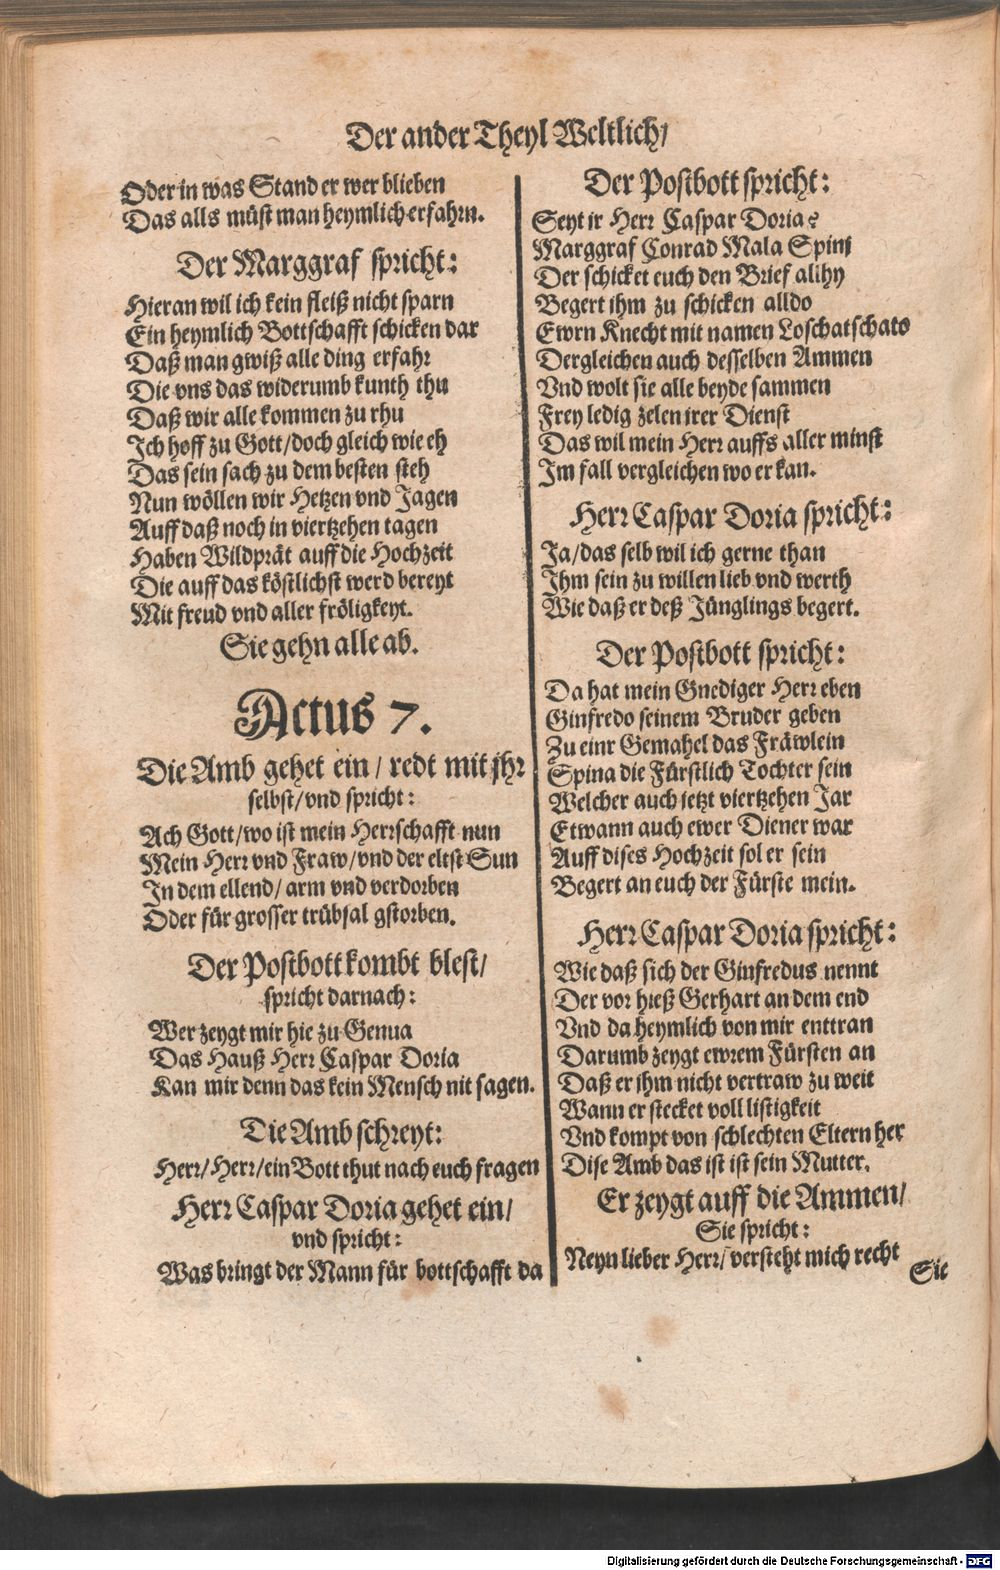 Der ander Theyl Weltlich/
Oder in was Stand er wer blieben
Das alls müst man heymlich erfahrn.
Der Marggraf spricht:
Hieran wil ich kein fleiß nicht sparn
Ein heymlich Bottschafft schicken dar
Daß man gwiß alle ding erfahr
Die vns das widerumb kunth thu
Daß wir alle kommen zu rhu
Ich hoff zu Gott/doch gleich wie eh
Das sein sach zu dem besten steh
Nun wöllen wir Hetzen vnd Jagen
Auff daß noch in viertzehen tagen
Haben Wildprät auff die Hochzeit
Die auff das köstlichst werd bereyt
Mit freud vnd aller fröligkeyt.
Sie gehn alle ab.
Actus 7.
Die Amb gehet ein/ redt mit jhr
selbst/vnd spricht:
Ach Gott/wo ist mein Herrschafft nun
Mein Herr vnd Fraw/vnd der eltst Sun
In dem ellend/ arm vnd verdorben
Oder für grosser trübsal gstorben.
Der Postbott kombt blest/
spricht darnach:
Wer zeygt mir hie zu Genua
Das Hauß Herr Caspar Doria
Kan mir denn das kein Mensch nit sagen.
Die Amb schreyt:
Herr/Herr/ein Bott thut nach euch fragen
Herr Caspar Doria gehet ein/
vnd spricht:
Was bringt der Mann für bottschafft da
Der Postbott spricht:
Seyt ir Herr Caspar Doria?
Marggraf Conrad Mala Spini
Der schicket euch den Brief alihy
Begert ihm zu schicken alldo
Ewrn Knecht mit namen Loschatschato
Dergleichen auch desselben Ammen
Vnd wolt sie alle beyde sammen
Frey ledig zelen irer Dienst
Das wil mein Herr auffs aller minst
Im fall vergleichen wo er kan.
Herr Caspar Doria spricht:
Ja/das selb wil ich gerne than
Ihm sein zu willen lieb vnd werth
Wie daß er deß Jünglings begert.
Der Postbott spricht:
Da hat mein Gnediger Herr eben
Ginfredo seinem Bruder geben
Zu einr Gemahel das Fräwlein
Spina die Fürstlich Tochter sein
Welcher auch jetzt viertzehen Jar
Etwann auch ewer Diener war
Auff dises Hochzeit sol er sein
Begert an euch der Fürste mein.
Herr Caspar Doria spricht:
Wie daß sich der Ginfredus nennt
Der vor hieß Gerhart an dem end
Vnd da heymlich von mir enttran
Darumb zeygt ewrem Fürsten an
Daß er ihm nicht vertraw zu weit
Wann er stecket voll listigkeit
Vnd kompt von schlechten Eltern her
Dise Amb das ist ist sein Mutter.
Er zeygt auff die Ammen/
Sie spricht:
Neyn lieber Herr/versteht mich recht
Sie
Digitalisierung gefördert durch die Deutsche Forschungsgemeinschaft - DFG